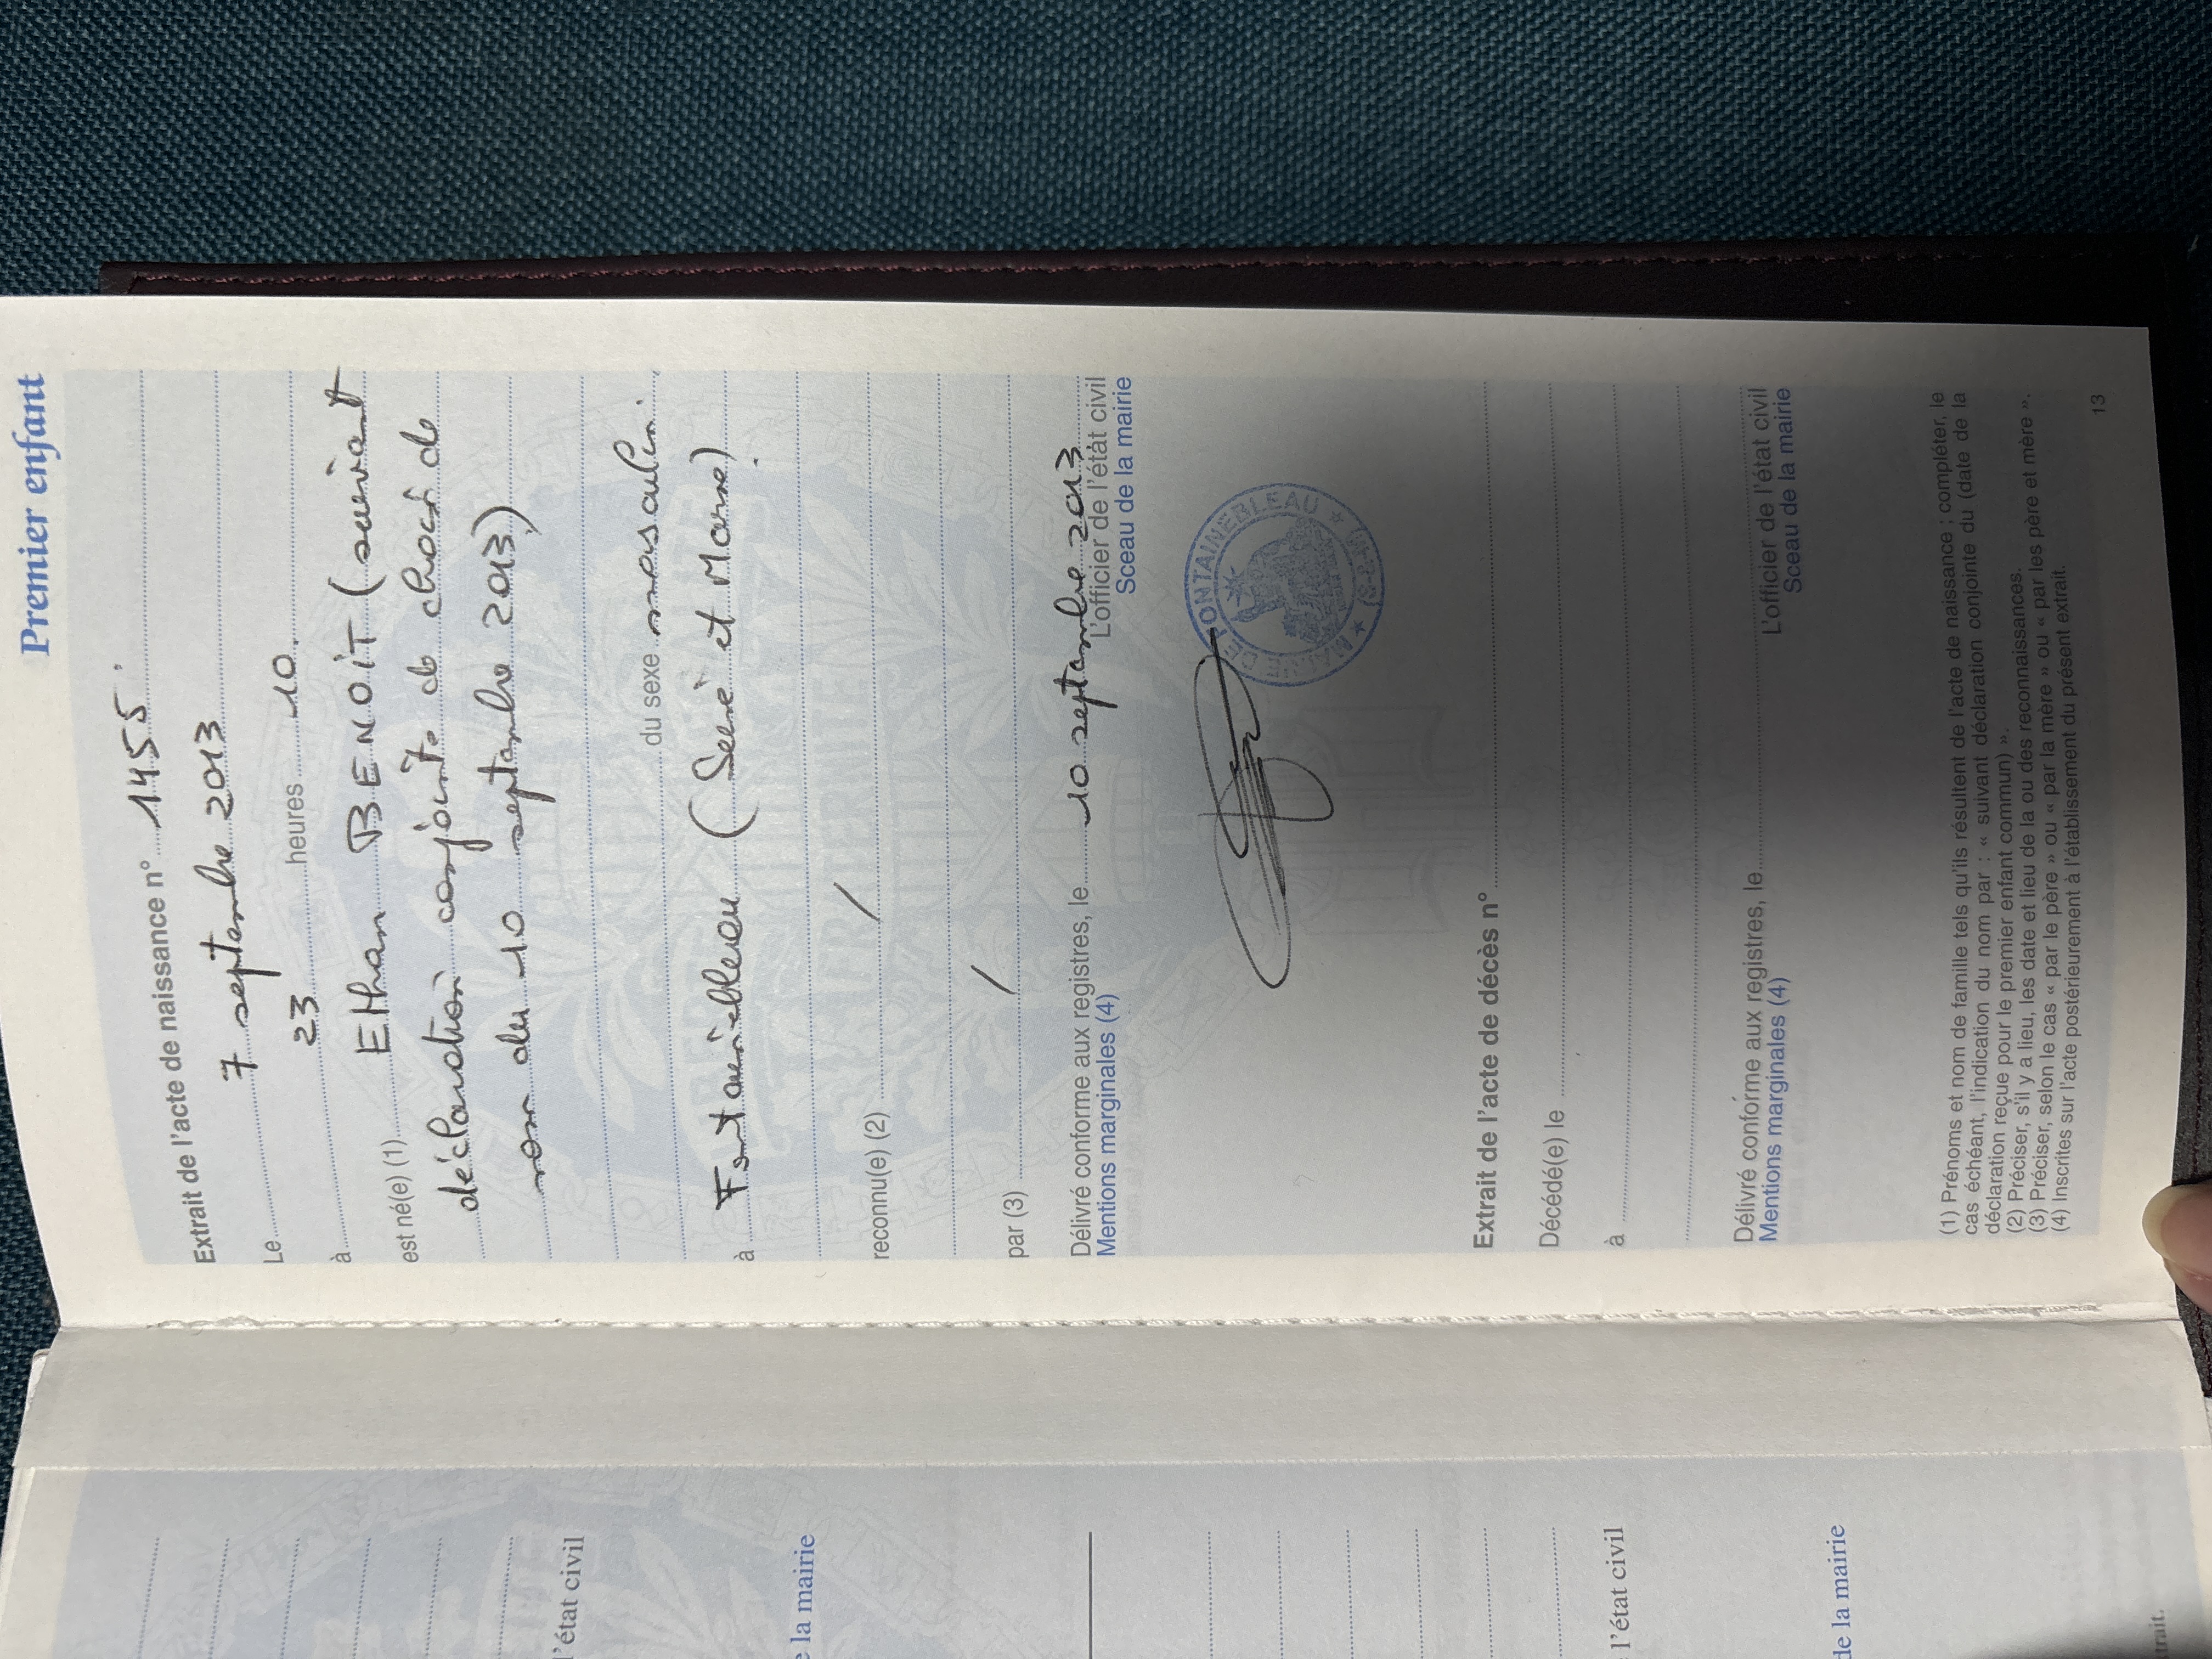 Premier enfant
Extrait de l'acte de naissance n° 1455
Le 7 septembre 2013
à 23 heures 10
est né(e) (1) Ethan BENOIT (suivant
déclaration conjointe de choix de
nom du 10 septembre 2013)
du sexe masculin.
à Fontainebleau (Seine et Marne)
reconnu(e) (2) /
par (3) /
Délivré conforme aux registres, le 10 septembre 2013
Mentions marginales (4) L'officier de l'état civil
Sceau de la mairie
MAIRIE DE FONTAINEBLEAU ★ (S-&-M) ★
Extrait de l'acte de décès n°
Décédé(e) le
à
Délivré conforme aux registres, le
Mentions marginales (4) L'officier de l'état civil
Sceau de la mairie
(1) Prénoms et nom de famille tels qu'ils résultent de l'acte de naissance ; compléter, le
cas échéant, l'indication du nom par : « suivant déclaration conjointe du (date de la
déclaration reçue pour le premier enfant commun) ».
(2) Préciser, s'il y a lieu, les date et lieu de la ou des reconnaissances.
(3) Préciser, selon le cas « par le père » ou « par la mère » ou « par les père et mère ».
(4) Inscrites sur l'acte postérieurement à l'établissement du présent extrait.
13
l'état civil
la mairie
l'état civil
de la mairie
trait.